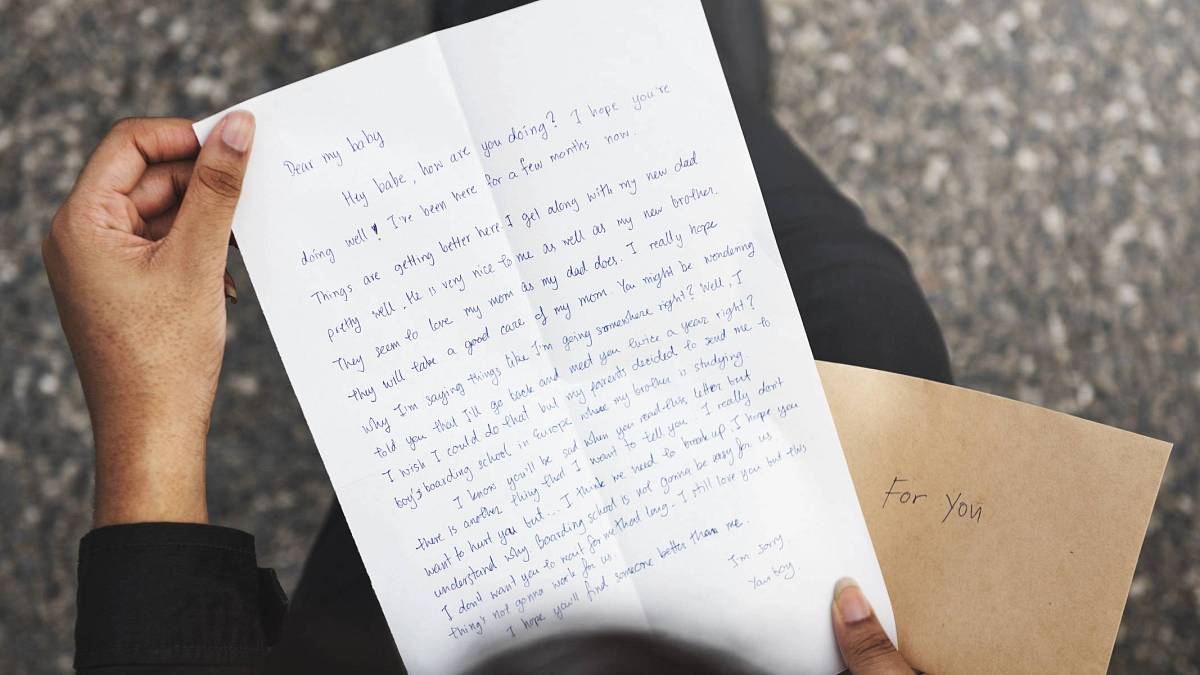 Dear my baby
Hey babe, how are you doing? I hope you're
doing well! I've been here for a few months now.
Things are getting better here. I get along with my new dad
pretty well. He is very nice to me as well as my new brother.
They seem to love my mom as my dad does. I really hope
they will take a good care of my mom. You might be wondering
why I'm saying things like I'm going somewhere right? Well, I
told you that I'll go back and meet you twice a year right?
I wish I could do that but my parents decided to send me to
boy's boarding school in Europe where my brother is studying.
I know you'll be sad when you read this letter but
there is another thing that I want to tell you I really don't
want to hurt you but... I think we need to break up. I hope you
understand why. Boarding school is not gonna be easy for us.
I don't want you to wait for me that long. I still love you but this
thing's not gonna work for us.
I hope you'll find someone better than me.
I'm sorry.
Your boy.
For You